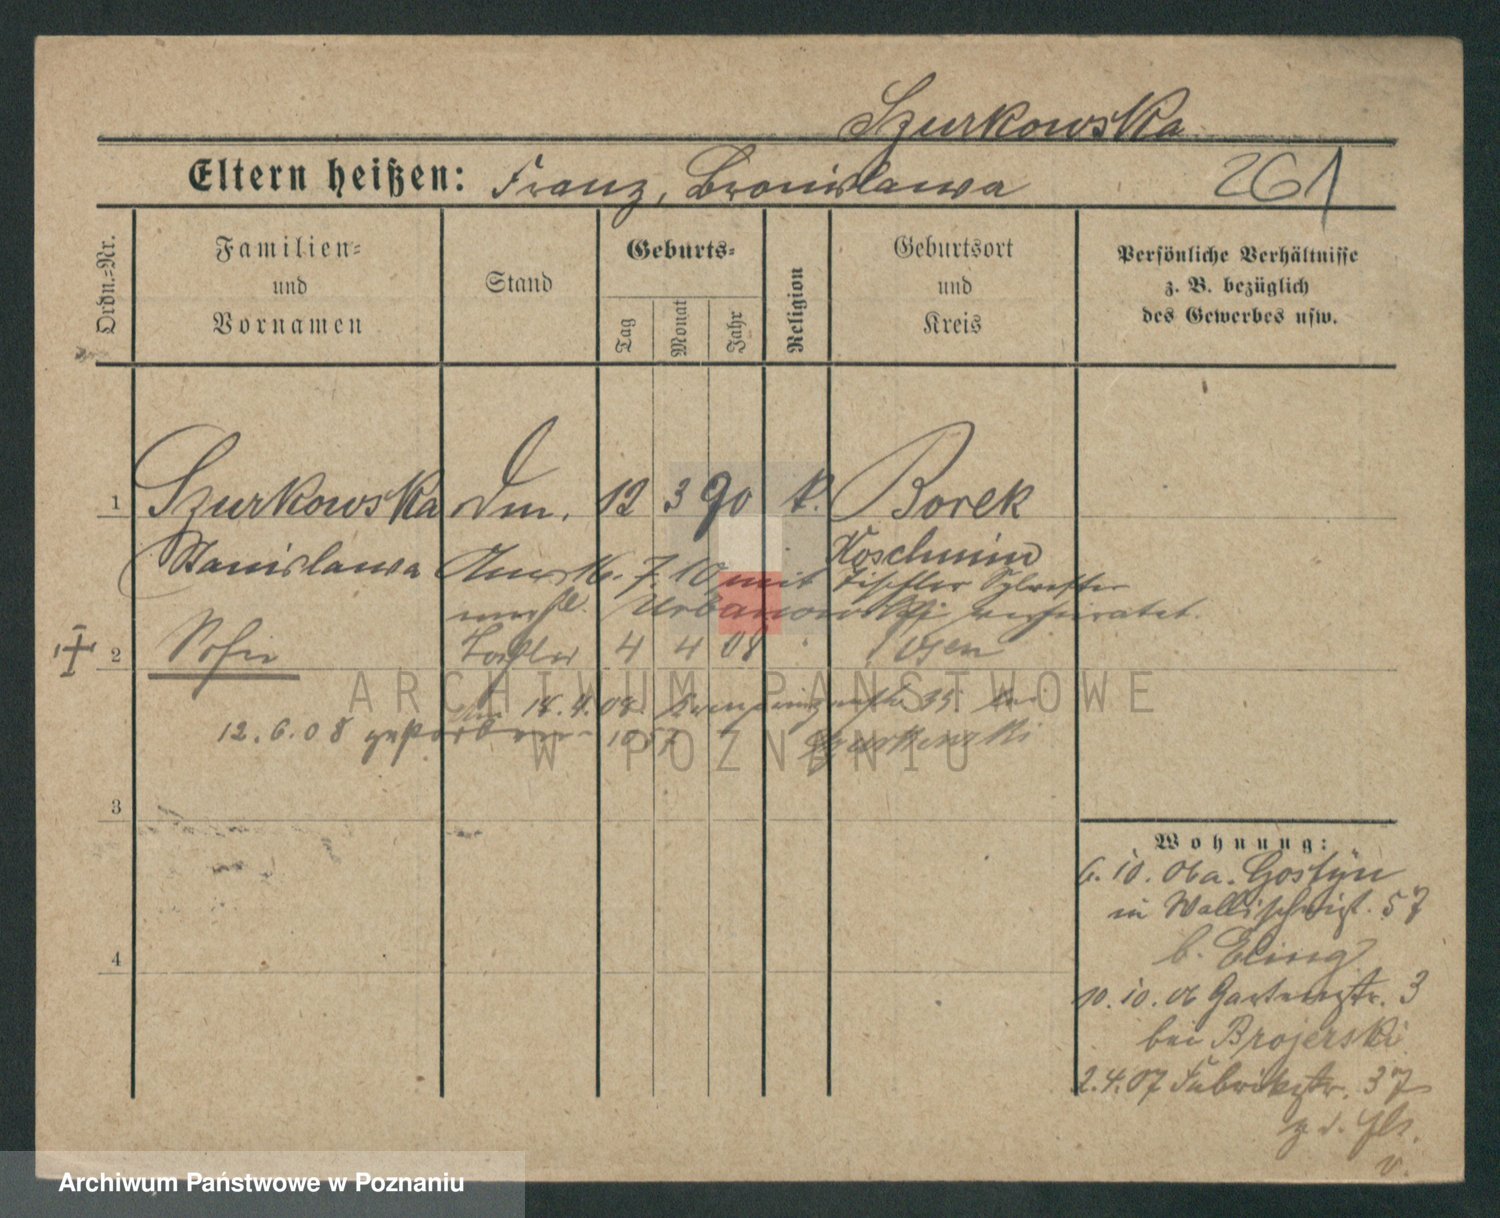 Szurkowska
Eltern heißen: Franz, Bronislawa 261
Ordn.=Nr.
Familien=
und
Vornamen
Stand
Geburts=
Tag
Monat
Jahr
Religion
Geburtsort
und
Kreis
Persönliche Verhältnisse
z. B. bezüglich
des Gewerbes usw.
1 Szurkowska 12 3 90 k. Borek
Stanislawa Koschmin
7. 10 mit Tischler Sylvester
Urbanowski verheiratet.
2 Sofie Tochter 4 4 08 Posen
18. 4. 08.
12. 6. 08 gestorben 1057 Szurkowski
3
4
Wohnung:
6. 10. 06 a. Gostyn
in Wallischeistr. 57
b. Eling
10. 10. 06 Gartenstr. 3
bei Brojerski
2. 4. 07 Fabrikstr. 37
z. d. Elt.
v.
ARCHIWUM PAŃSTWOWE
W POZNANIU
Archiwum Państwowe w Poznaniu